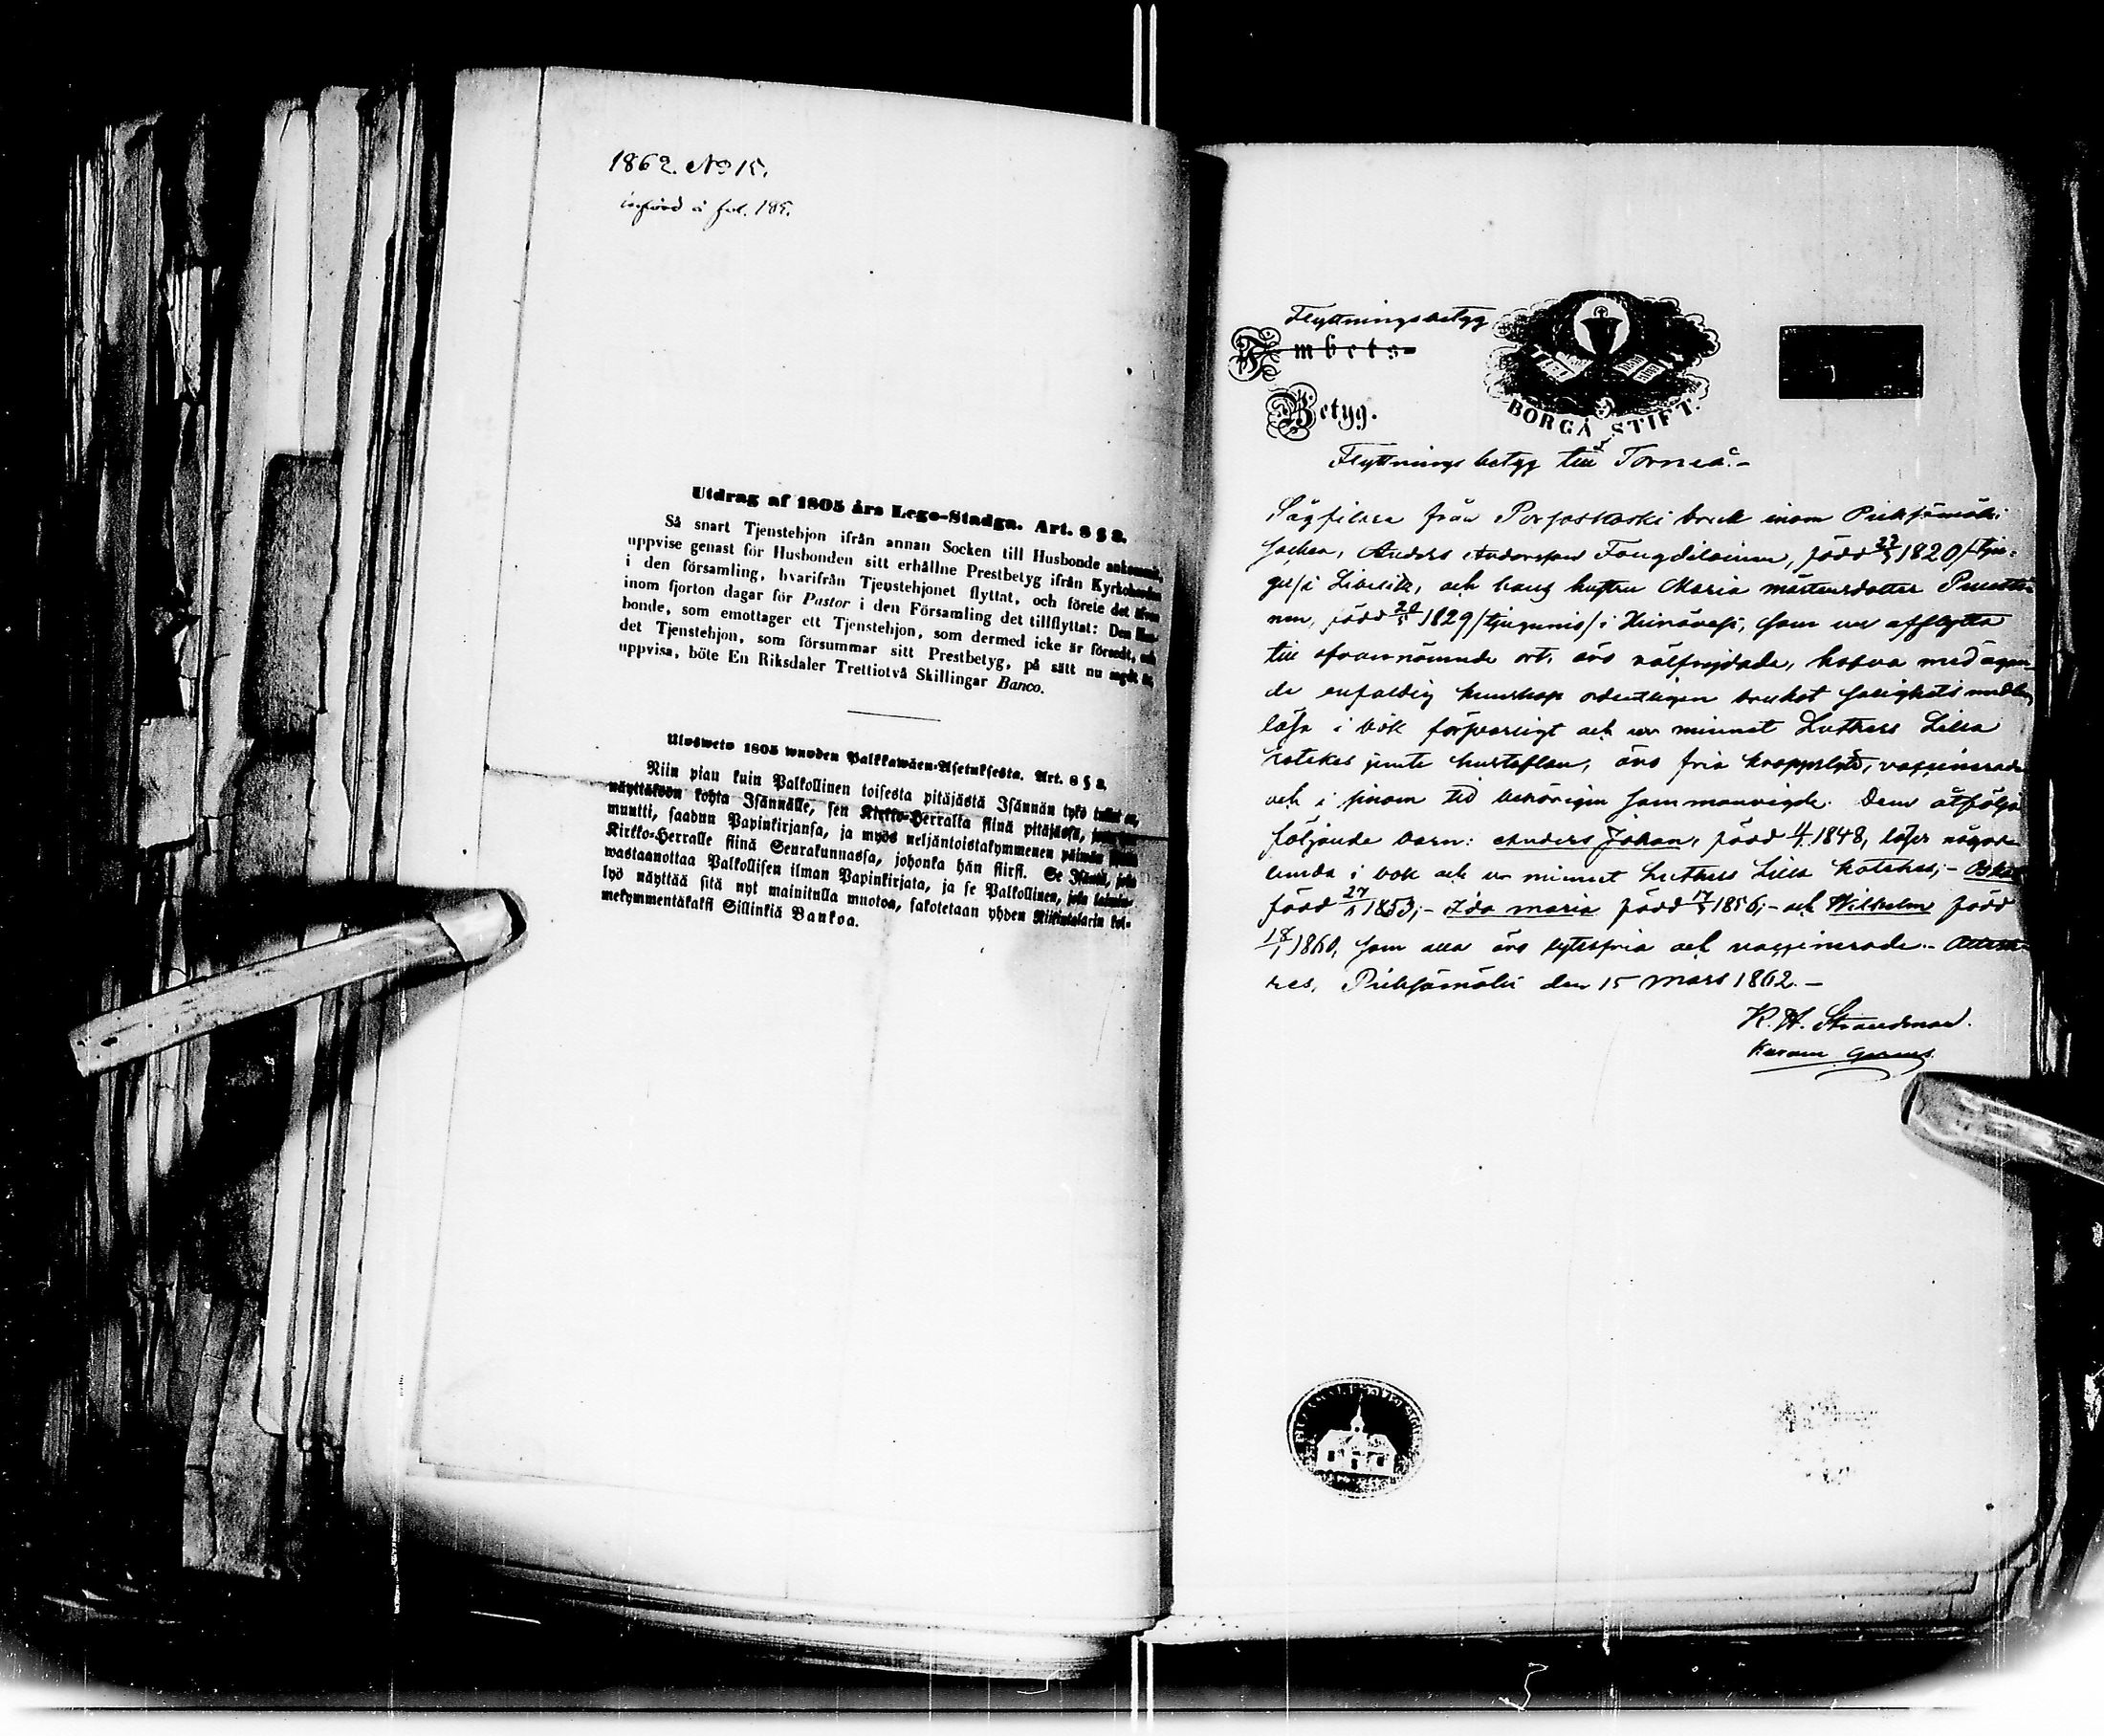 1862. No 15.
införd å fol. 185.
Utdrag af 1805 års Lego-Stadga. Art. 8 § 8.
Så snart Tjenstehjon ifrån annan Socken till Husbonde ankommit,
uppvise genast för Husbonden sitt erhållne Prestbetyg ifrån Kyrkoherden
i den församling, hvarifrån Tjenstehjonet flyttat, och förete det äfven
inom fjorton dagar för Pastor i den Församling det tillflyttat: Den Hus-
bonde, som emottager ett Tjenstehjon, som dermed icke är försedt, och
det Tjenstehjon, som försummar sitt Prestbetyg, på sätt nu sagdt är,
uppvisa, böte En Riksdaler Trettiotvå Skillingar Banco.
Ulosweto 1805 wuoden Palkkawäen-Asetuksesta. Art. 8 § 8.
Niin pian kuin Palkollinen toisesta pitäjästä Isännän tykö tullut on,
näyttäköön kohta Isännälle, sen Kirkko-Herralta siinä pitäjässä, josta hän
muutti, saadun Papinkirjansa, ja myös neljäntoistakymmenen päiwän
Kirkko-Herralle siinä Seurakunnassa, johonka hän siirsi. Se Isäntä, joka
wastaanottaa Palkollisen ilman Papinkirjata, ja se Palkollinen, joka laimin-
lyö näyttää sitä nyt mainitulla muotoa, sakotetaan yhden Riikintalarin kol-
mekymmentäkaksi Sillinkiä Bankoa.
Flyttningsbetyg
Embets-
Betyg.
BORGÅ STIFT.
Flyttnings betyg till Torneå.-
Sågfilare från Porsaskoski bruk inom Pieksämäki
socken, Anders Andersson, född 22/5 1820
i Libelitz, och hans hustru Maria Mårtensdotter
nen, född 1829 i Heinävesi, som nu afflytta
till ofvannämnde ort, äro välfrejdade, hafva med ägan-
de enfaldig kunskap ordentligen brukat salighets medlen
läsa i bok försvarligt och ur minnet Luthers Lilla
katekes jemte hustaflan, äro fria kroppslyte, vaccinerade
och i sinom tid behörigen sammanvigde. Dem åtfölja
följande barn: Anders Johan, född 1848, läser någor-
lunda i bok och ur minnet Luthers Lilla katekes;- Oskar
född 27/11 1853;- Ida Maria född 17/5 1856;- och Wilhelm född
18/1 1860, som alla äro lytesfria och vaccinerade.- Atteste-
res, Pieksämäki den 15 Mars 1862.-
K. H. Strandman.